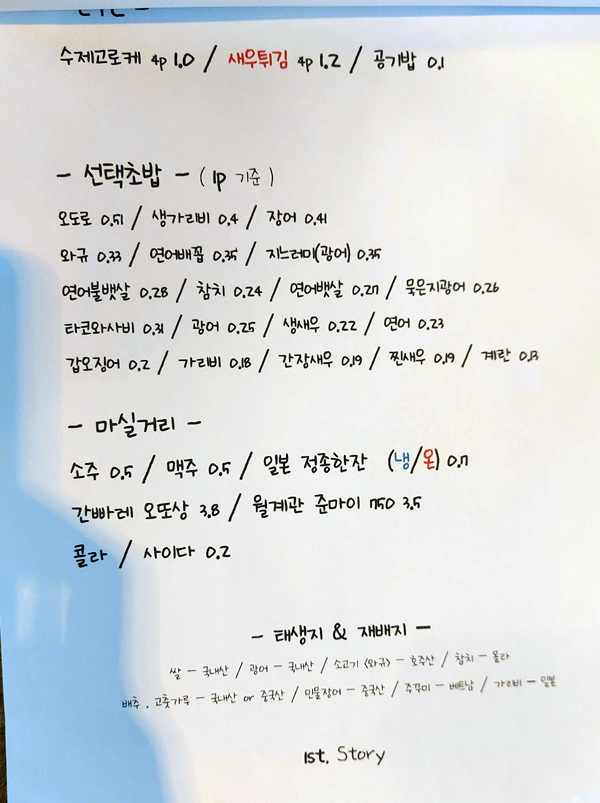 수제고로케 4p 1.0 / 새우튀김 4p 1.2 / 공기밥 0.1
- 선택초밥 - ( 1p 기준 )
오도로 0.51 / 생가리비 0.4 / 장어 0.41
와규 0.33 / 연어배꼽 0.35 / 지느러미(광어) 0.35
연어불뱃살 0.28 / 참치 0.24 / 연어뱃살 0.27 / 묵은지광어 0.26
타코와사비 0.31 / 광어 0.25 / 생새우 0.22 / 연어 0.23
갑오징어 0.2 / 가리비 0.18 / 간장새우 0.19 / 찐새우 0.19 / 계란 0.13
- 마실거리 -
소주 0.5 / 맥주 0.5 / 일본 정종한잔 (냉/온) 0.7
간빠레 오또상 3.8 / 월계관 준마이 750 3.5
콜라 / 사이다 0.2
- 태생지 & 재배지 -
쌀 - 국내산 / 광어 - 국내산 / 소고기 <와규> - 호주산 / 참치 - 몰타
배추 . 고춧가루 - 국내산 or 중국산 / 민물장어 - 중국산 / 주꾸미 - 베트남 / 가리비 - 일본
1st. Story